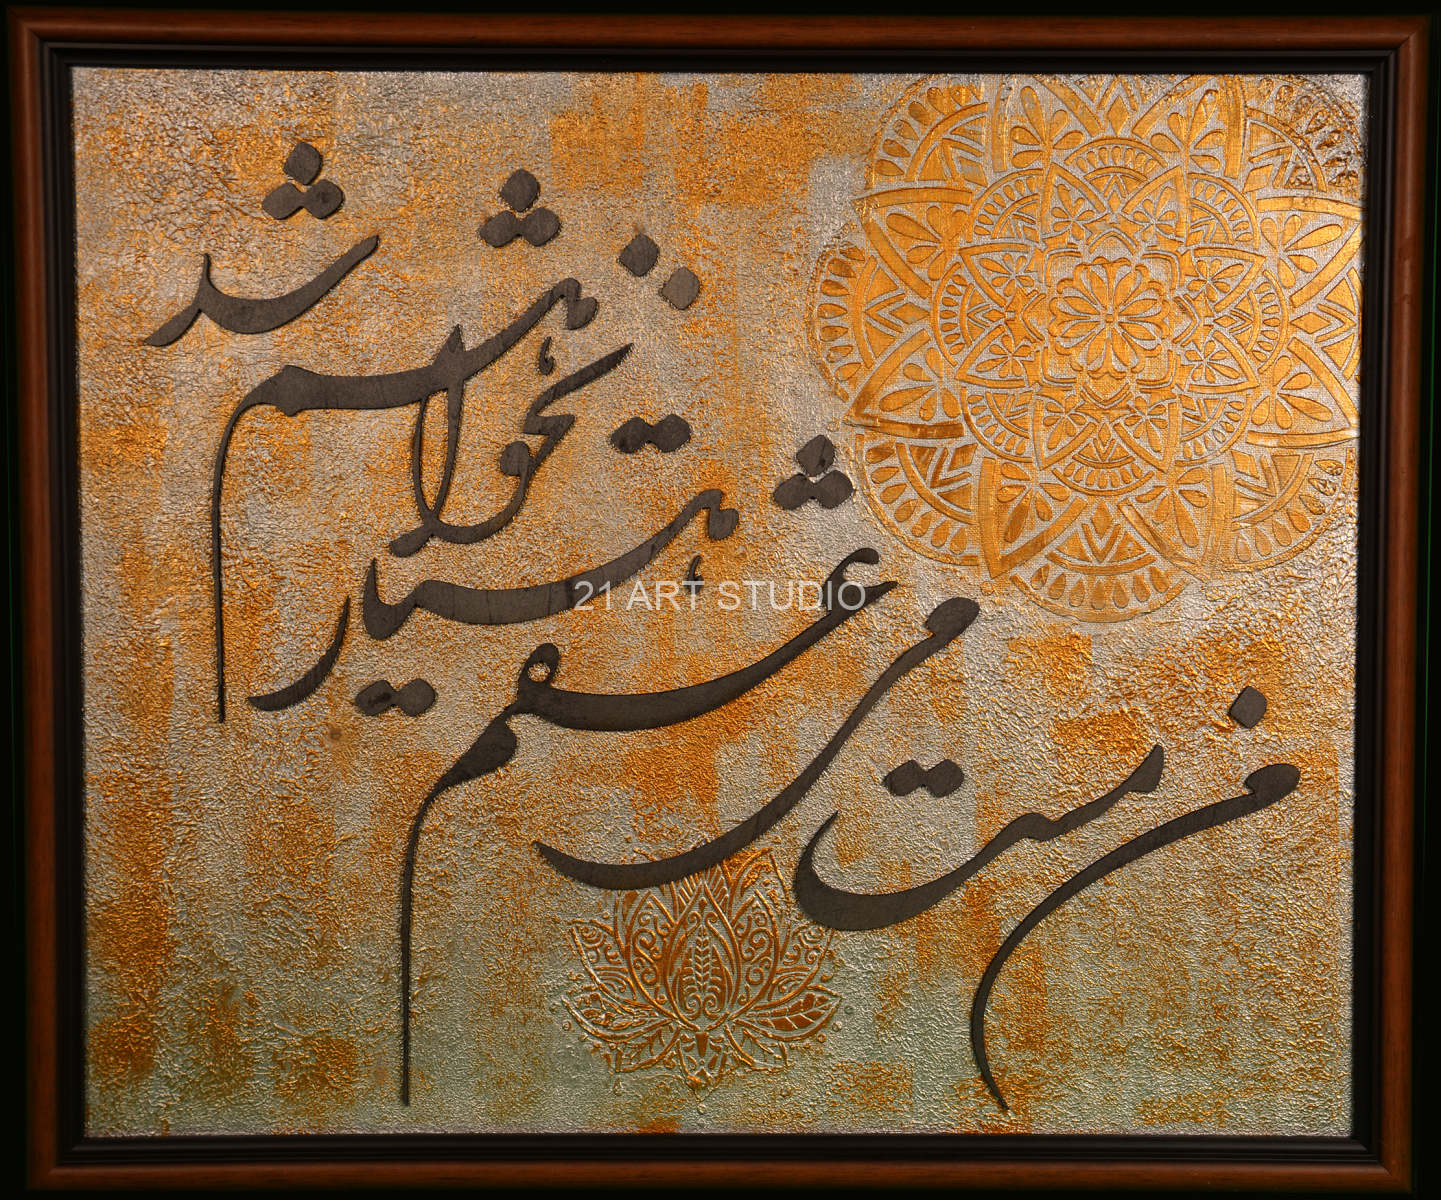 من مست می عشقم هشیار نخواهم شد
21 ART STUDIO